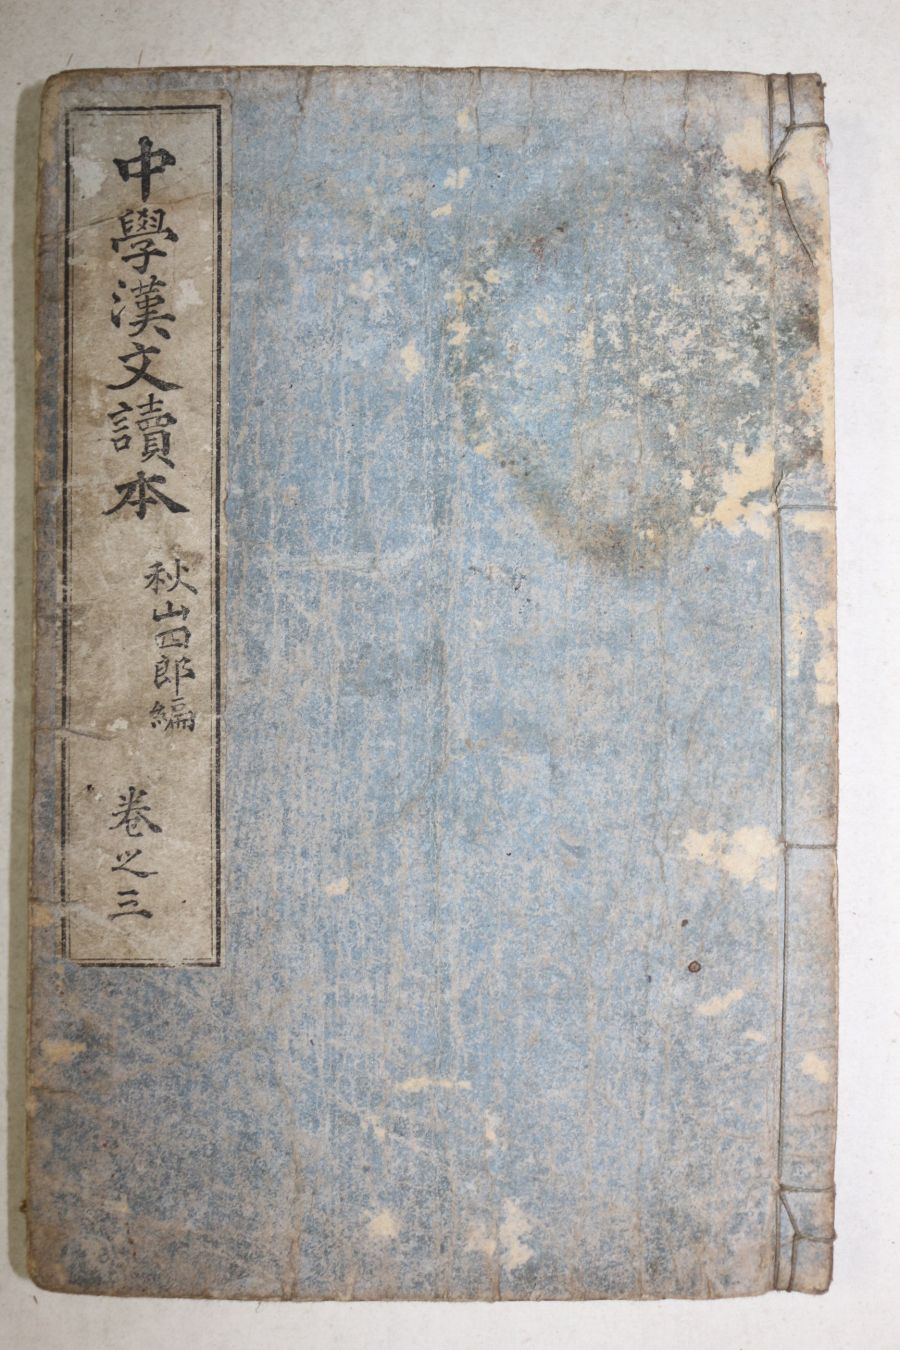 中學漢文讀本
秋山四郎編
卷之三